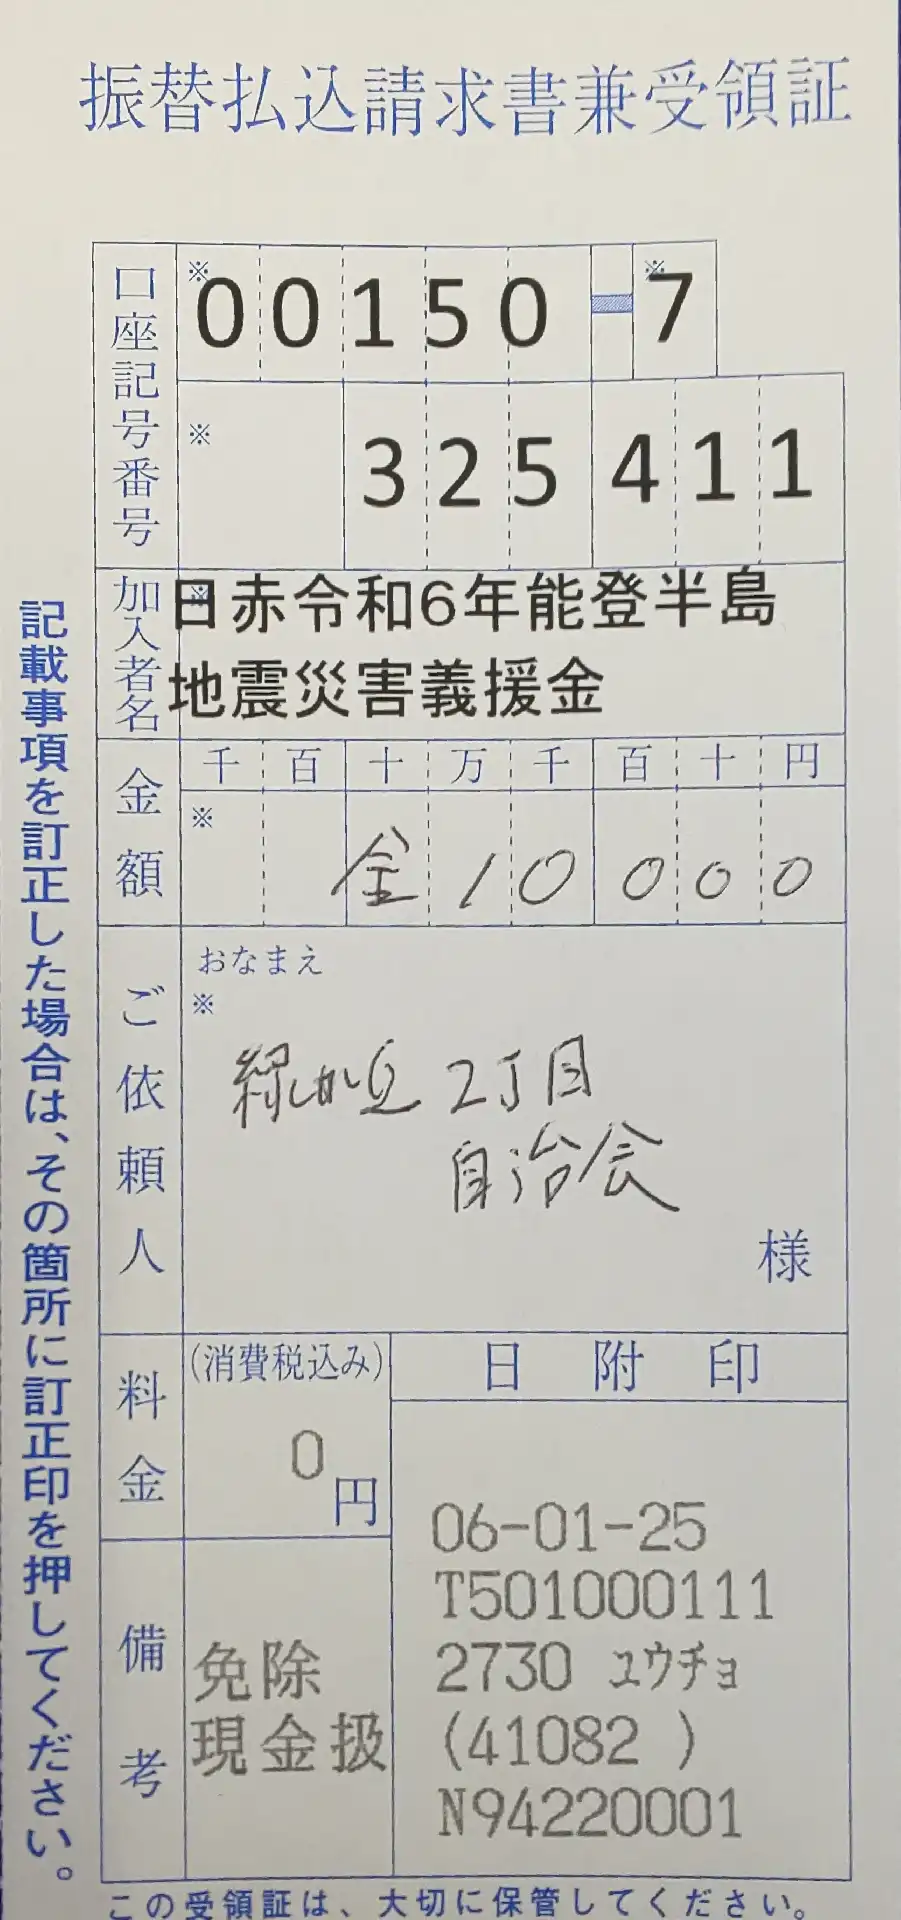 振替払込請求書兼受領証
口座記号番号
※
00150-7
※
※
325411
加入者名
※
日赤令和6年能登半島
地震災害義援金
金額
千百十万千百十円
※
金10000
ご依頼人
おなまえ
※
緑が丘2丁目
自治会
様
料金
(消費税込み)
0円
日附印
06-01-25
T501000111
2730 ユウチョ
(41082 )
N94220001
備考
免除
現金扱
記載事項を訂正した場合は、その箇所に訂正印を押してください。
この受領証は、大切に保管してください。